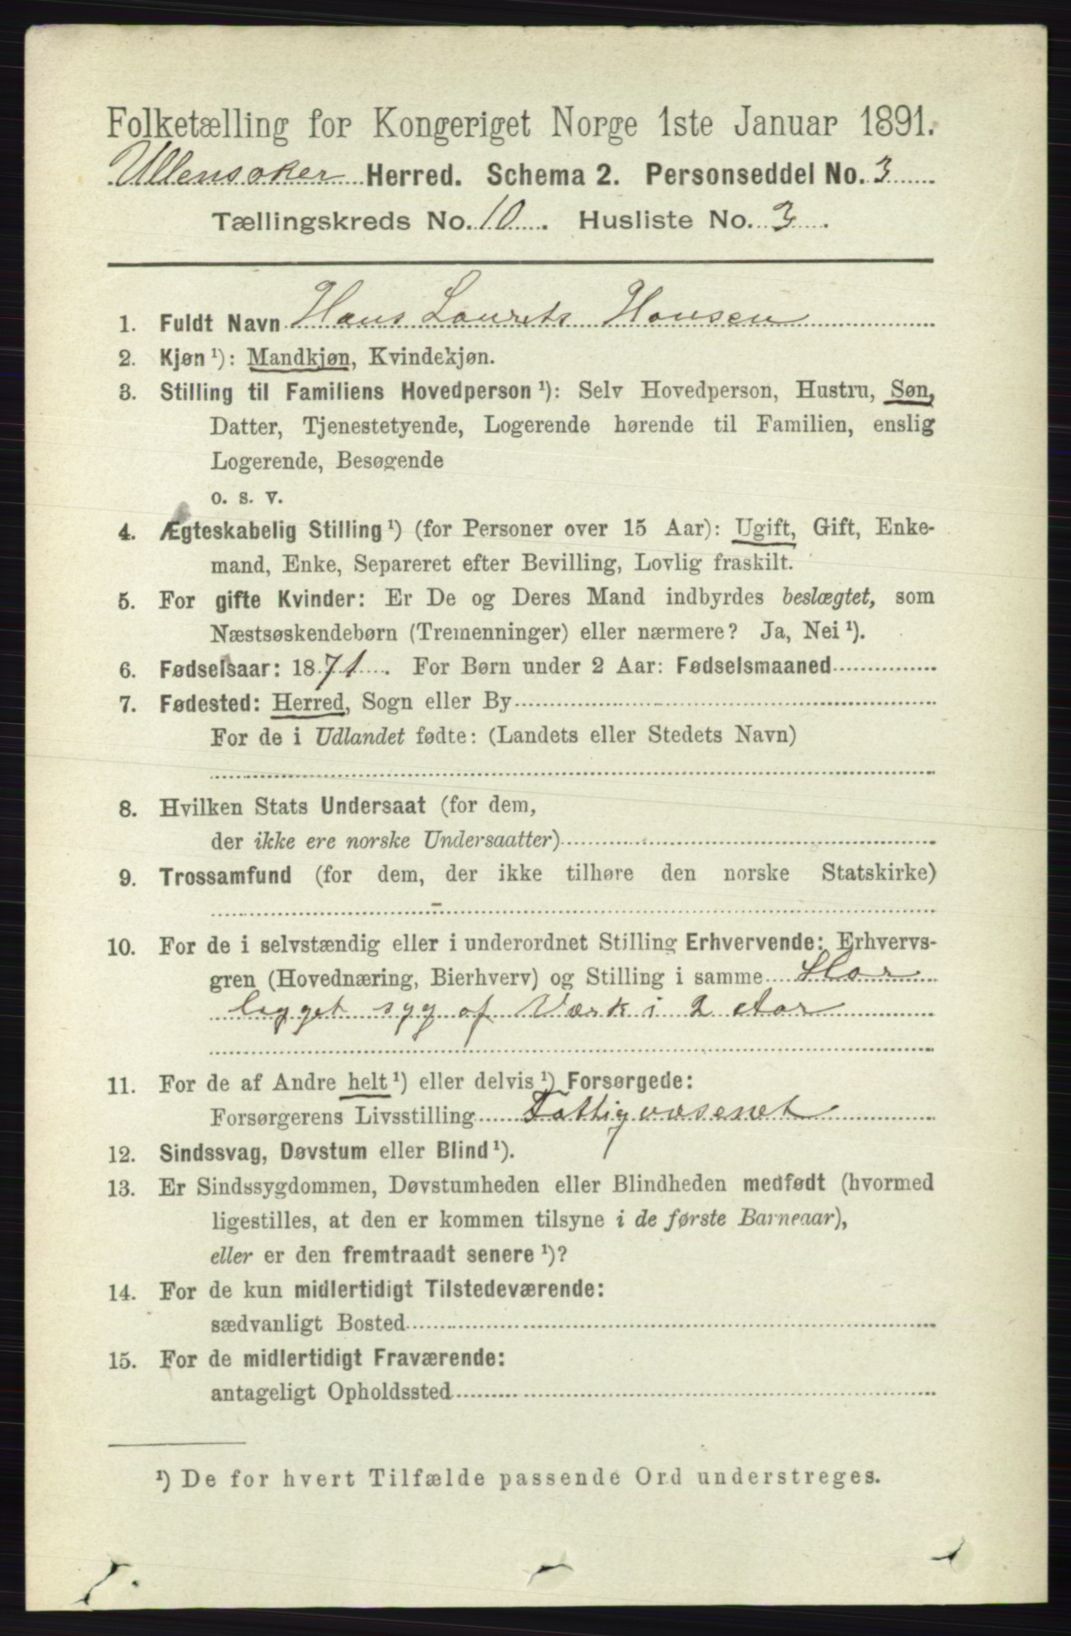 Folketælling for Kongeriget Norge 1ste Januar 1891.
Ullensaker Herred. Schema 2. Personseddel No. 3
Tællingskreds No. 10. Husliste No. 3.
1. Fuldt Navn Hans Laurets Hansen
2. Kjøn ¹): Mandkjøn, Kvindekjøn.
3. Stilling til Familiens Hovedperson ¹): Selv Hovedperson, Hustru, Søn,
Datter, Tjenestetyende, Logerende hørende til Familien, enslig
Logerende, Besøgende
o. s. v.
4. Ægteskabelig Stilling ¹) (for Personer over 15 Aar): Ugift, Gift, Enke-
mand, Enke, Separeret efter Bevilling, Lovlig fraskilt.
5. For gifte Kvinder: Er De og Deres Mand indbyrdes beslægtet, som
Næstsøskendebørn (Tremenninger) eller nærmere? Ja, Nei ¹).
6. Fødselsaar: 1871. For Børn under 2 Aar: Fødselsmaaned
7. Fødested: Herred, Sogn eller By
For de i Udlandet fødte: (Landets eller Stedets Navn)
8. Hvilken Stats Undersaat (for dem,
der ikke ere norske Undersaatter)
9. Trossamfund (for dem, der ikke tilhøre den norske Statskirke)
–
10. For de i selvstændig eller i underordnet Stilling Erhvervende: Erhvervs-
gren (Hovednæring, Bierhverv) og Stilling i samme Har
ligget syg af Værk i 2 Aar
11. For de af Andre helt ¹) eller delvis ¹) Forsørgede:
Forsørgerens Livsstilling Fattigvæsenet
12. Sindssvag, Døvstum eller Blind ¹).
13. Er Sindssygdommen, Døvstumheden eller Blindheden medfødt (hvormed
ligestilles, at den er kommen tilsyne i de første Barneaar),
eller er den fremtraadt senere ¹)?
14. For de kun midlertidigt Tilstedeværende:
sædvanligt Bosted
15. For de midlertidigt Fraværende:
antageligt Opholdssted
¹) De for hvert Tilfælde passende Ord understreges.